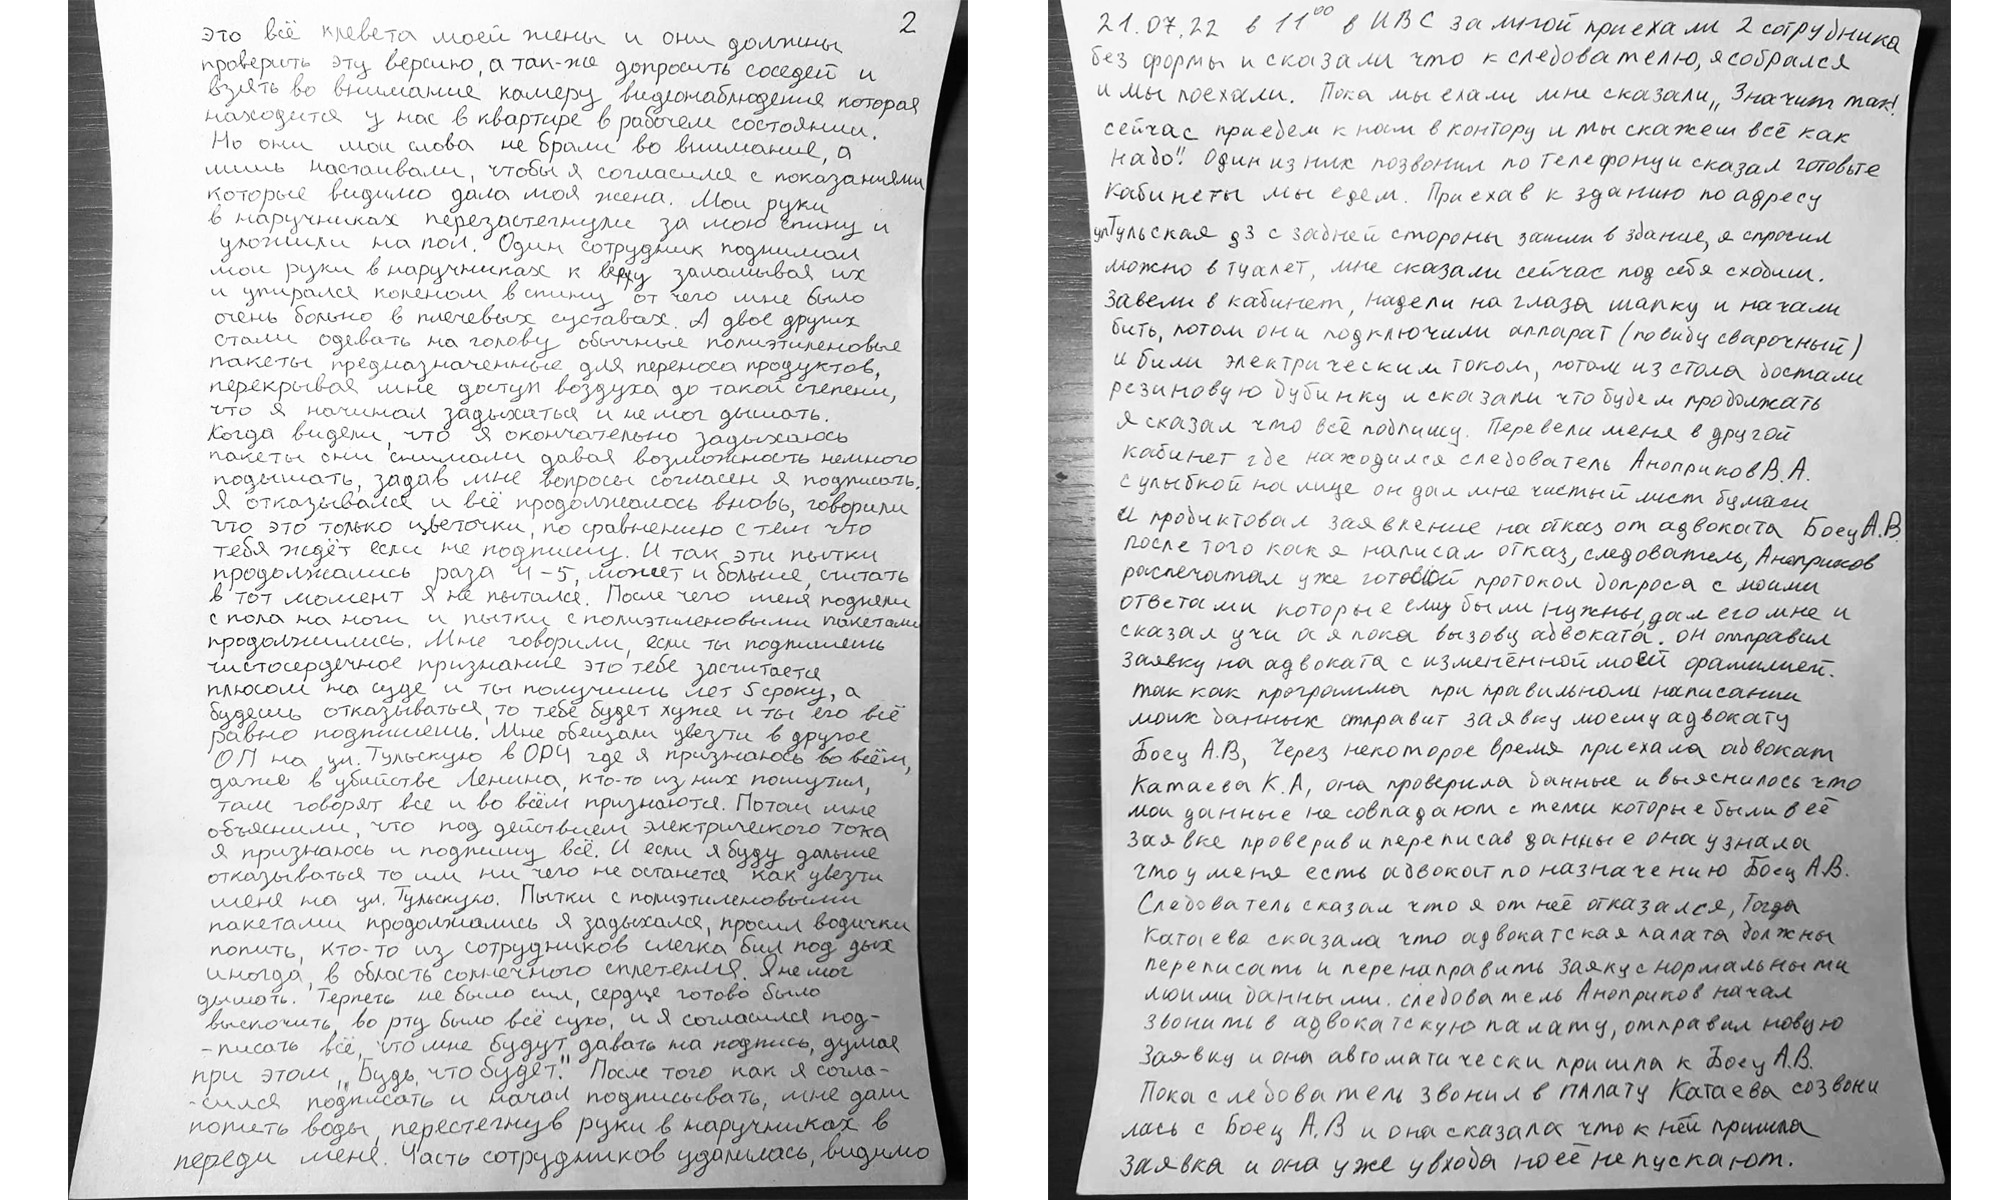 2
это всё клевета моей жены и они должны
проверить эту версию, а так-же допросить соседей и
взять во внимание камеру видеонаблюдения которая
находится у нас в квартире в рабочем состоянии.
Но они мои слова не брали во внимание, а
лишь настаивали, чтобы я согласился с показаниями
которые видимо дала моя жена. Мои руки
в наручниках перезастегнули за мою спину и
уложили на пол. Один сотрудник поднимал
мои руки в наручниках к верху заламывая их
и упирался коленом в спину от чего мне было
очень больно в плечевых суставах. А двое других
стали одевать на голову обычные полиэтиленовые
пакеты предназначенные для переноса продуктов,
перекрывая мне доступ воздуха до такой степени,
что я начинал задыхаться и не мог дышать.
Когда видели, что я окончательно задыхаюсь
пакеты они снимали давая возможность немного
подышать, задав мне вопросы согласен я подписать.
Я отказывался и всё продолжалось вновь, говорили
что это только цветочки, по сравнению с тем что
тебя ждёт если не подпишу. И так эти пытки
продолжались раза 4-5, может и больше, считать
в тот момент я не пытался. После чего меня подняли
с пола на ноги и пытки с полиэтиленовыми пакетами
продолжились. Мне говорили, если ты подпишешь
чистосердечное признание это тебе засчитается
плюсом на суде и ты получишь лет 5 сроку, а
будешь отказываться, то тебе будет хуже и ты его всё
равно подпишешь. Мне обещали увезти в другое
ОП на ул. Тульскую в ОРЧ где я признаюсь во всём,
даже в убийстве Ленина, кто-то из них пошутил,
там говорят все и во всём признаются. Потом мне
объяснили, что под действием электрического тока
я признаюсь и подпишу всё. И если я буду дальше
отказываться то им ни чего не останется как увезти
меня на ул. Тульскую. Пытки с полиэтиленовыми
пакетами продолжались я задыхался, просил водички
попить, кто-то из сотрудников слегка бил под дых
иногда, в область солнечного сплетения. Я не мог
дышать. Терпеть не было сил, сердце готово было
выскочить, во рту было всё сухо, и я согласился под-
-писать всё, что мне будут давать на подпись, думая
при этом „Будь, что будет." После того как я согла-
-сился подписать и начал подписывать, мне дали
попить воды, перестегнув руки в наручниках в
переди меня. Часть сотрудников удалилась, видимо
21.07.22 в 11⁰⁰ в ИВС за мной приехали 2 сотрудника
без формы и сказали что к следователю, я собрался
и мы поехали. Пока мы ехали мне сказали „Значит так!
сейчас приедем к нам в контору и ты скажеш всё как
надо". Один из них позвонил по телефону и сказал готовьте
кабинеты мы едем. Приехав к зданию по адресу
ул Тульская д3 с задней стороны зашли в здание, я спросил
можно в туалет, мне сказали сейчас под себя сходиш.
Завели в кабинет, надели на глаза шапку и начали
бить, потом они подключили аппарат (по виду сварочный)
и били электрическим током, потом из стола достали
резиновую дубинку и сказали что будем продолжать
я сказал что всё подпишу. Перевели меня в другой
кабинет где находился следователь Аноприков В.А.
с улыбкой на лице он дал мне чистый лист бумаги
и продиктовал заявление на отказ от адвоката Боец А.В.
после того как я написал отказ, следователь, Аноприков
распечатал уже готовой протокол допроса с моими
ответами которые ему были нужны, дал его мне и
сказал учи а я пока вызову адвоката. он отправил
заявку на адвоката с изменённой моей фамилией.
так как программа при правильном написании
моих данных отправит заявку моему адвокату
Боец А.В, Через некоторое время приехала адвокат
Катаева К.А, она проверила данные и выяснилось что
мои данные не совпадают с теми которые были в её
заявке проверив и переписав данные она узнала
что у меня есть адвокат по назначению Боец А.В.
Следователь сказал что я от неё отказался, Тогда
Катаева сказала что адвокатская палата должны
переписать и перенаправить заяку с нормальными
моими данными. следователь Аноприков начал
звонить в адвокатскую палату, отправил новую
заявку и она автоматически пришла к Боец А.В.
Пока следователь звонил в ПАЛАТУ Катаева созвони
лась с Боец А.В и она сказала что к ней пришла
заявка и она уже у входа но её не пускают.